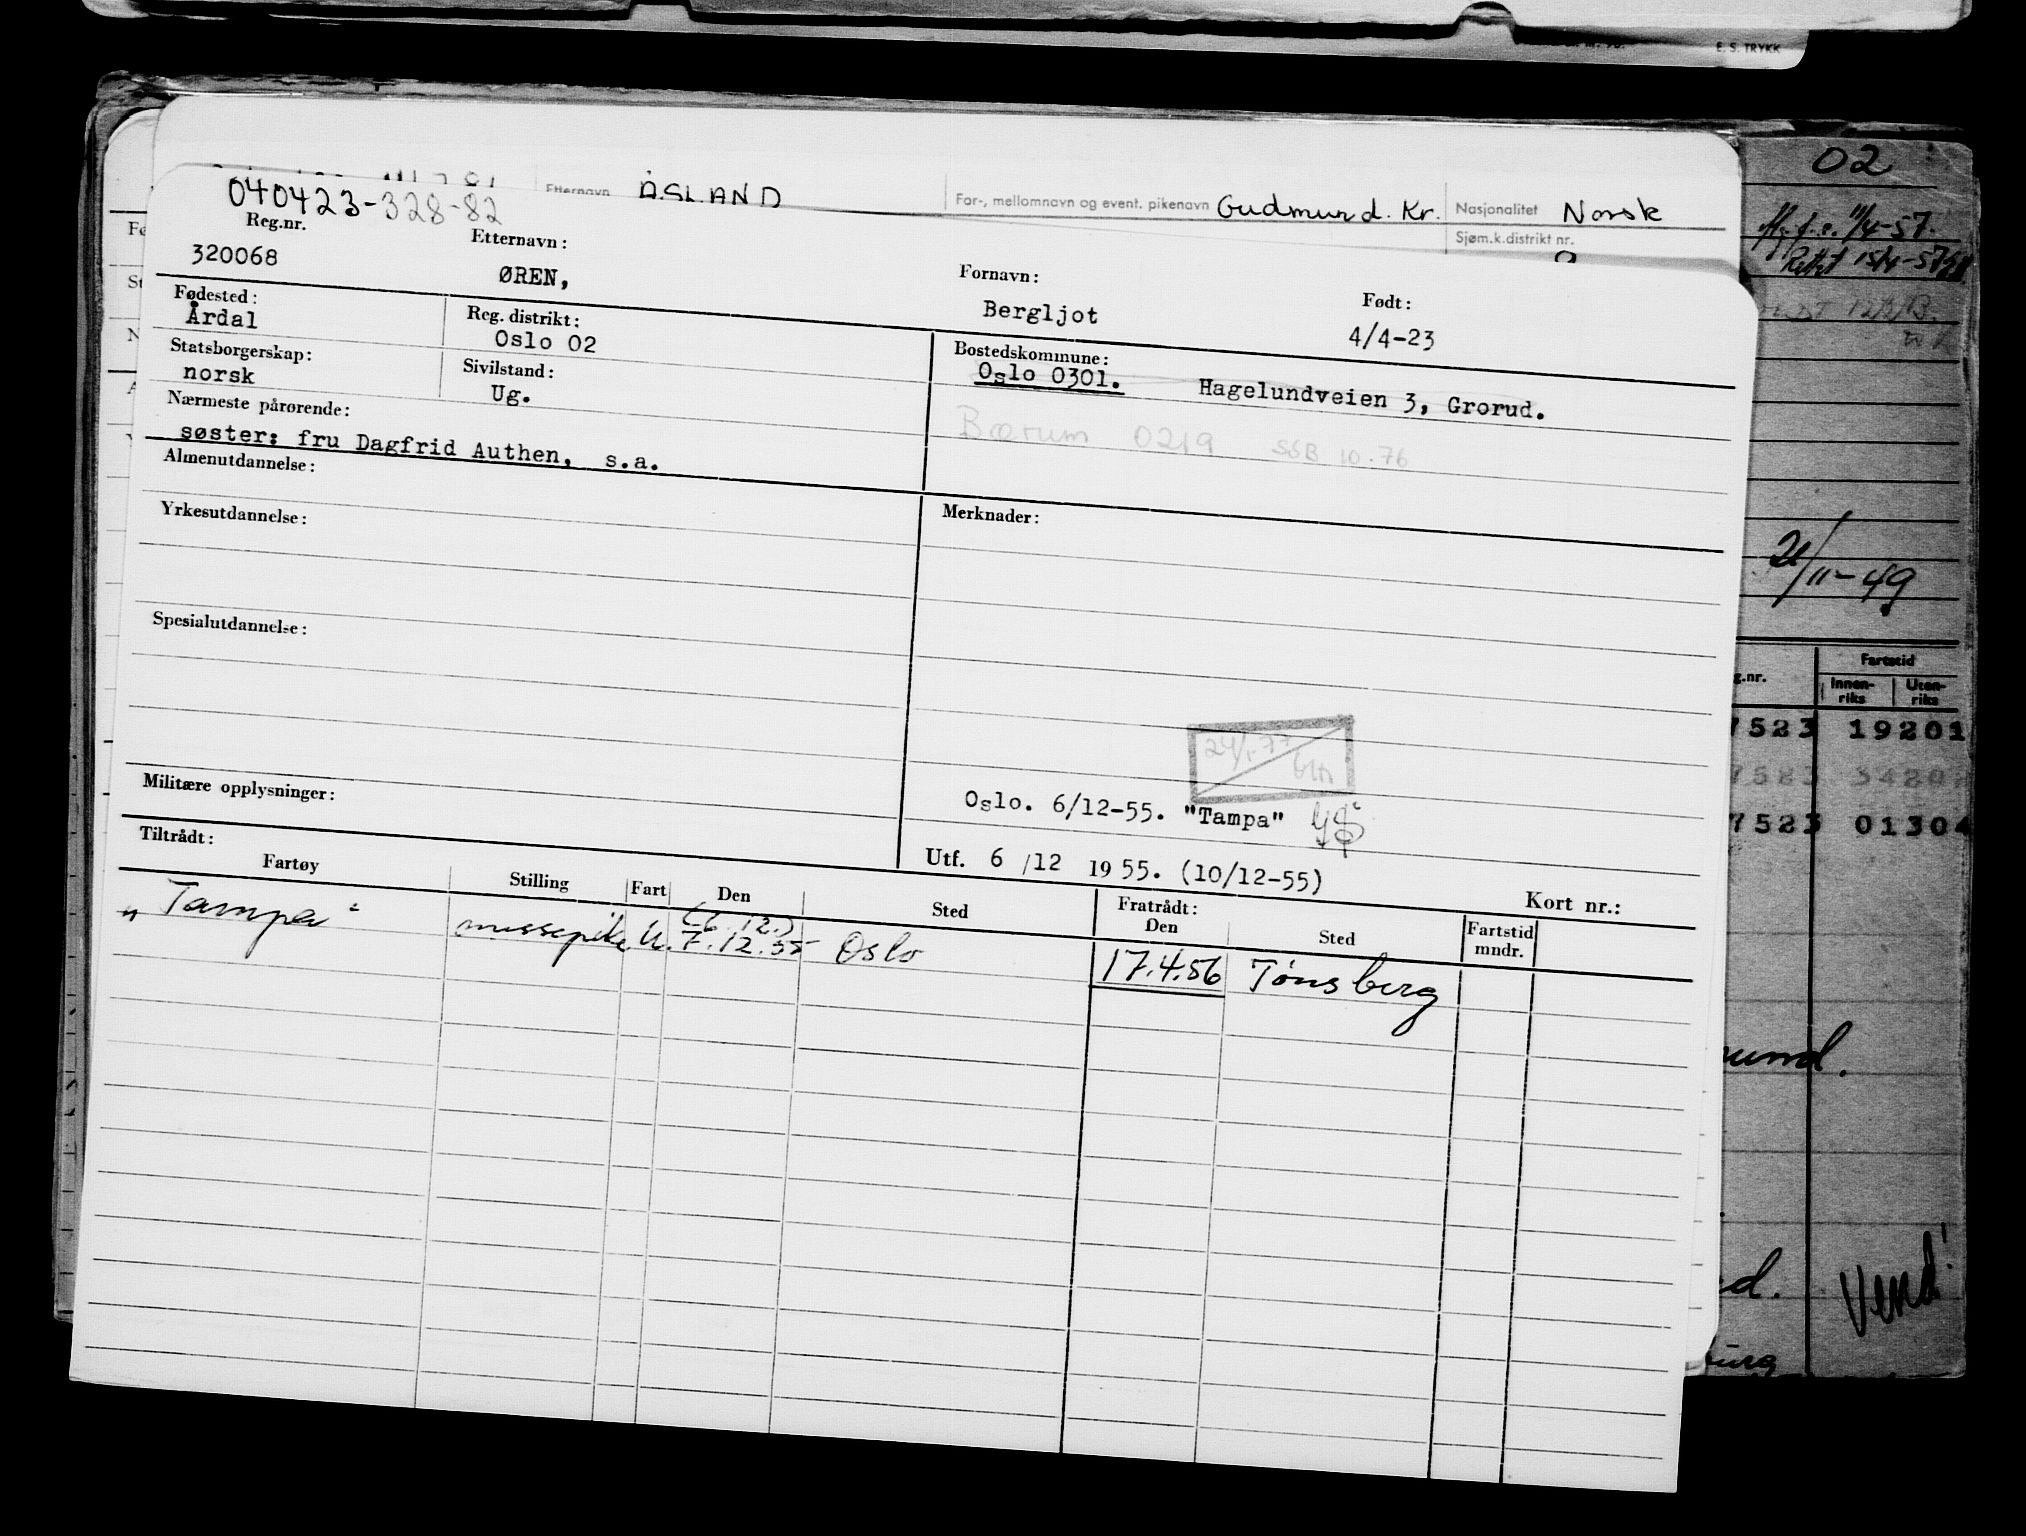 E. S. TRYKK
02
Etternavn ÅSLAND For-, mellomnavn og event. pikenavn Gudmund. Kr. Nasjonalitet Norsk
Sjøm.k.distrikt nr.
11/4-57.
Rettet 15/4-57
040423-328-82
Reg.nr. Etternavn: Fornavn: Født:
320068 ØREN, Bergljot 4/4-23
Fødested: Reg. distrikt: Bostedskommune:
Årdal Oslo 02 Oslo 0301. Hagelundveien 3, Grorud.
Statsborgerskap: Sivilstand:
norsk Ug.
Bærum 0219 SSB 10.76
Nærmeste pårørende:
søster: fru Dagfrid Authen, s.a.
Almenutdannelse:
Yrkesutdannelse: Merknader:
21/11-49
Spesialutdannelse:
g.nr. Fartstid
Innen-riks Uten-riks
7523 19201
7523 34202
7523 01304
24/1-77
Militære opplysninger:
Oslo. 6/12-55. "Tampa"
Utf. 6 /12 1955. (10/12-55)
Tiltrådt: Fratrådt: Kort nr.:
Fartøy Stilling Fart Den Sted Den Sted Fartstid mndr.
(6.12.)
"Tampa" messepike U. 7.12.55 Oslo 17.4.56 Tønsberg
mund.
d.
Vend!
burg